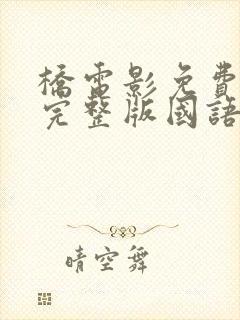 橋電影免費
完整版國語
晴空舞